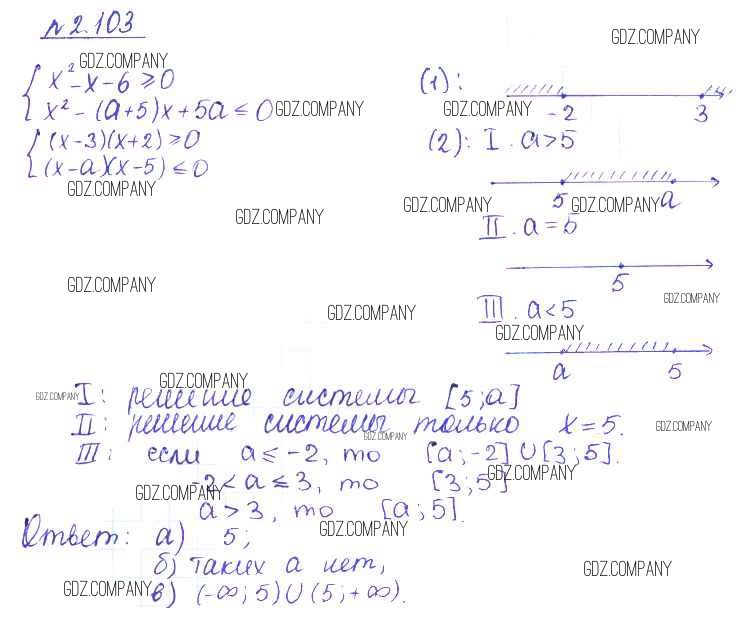 №2.103
GDZ.COMPANY
GDZ.COMPANY
x² - x - 6 ≥ 0
x² - (a+5)x + 5a ≤ 0 GDZ.COMPANY
(x-3)(x+2) ≥ 0
(x-a)(x-5) ≤ 0
GDZ.COMPANY
GDZ.COMPANY
(1):
-2 3
GDZ.COMPANY
(2): I. a>5
5 a
GDZ.COMPANY GDZ.COMPANY
II. a=5
GDZ.COMPANY
5
GDZ.COMPANY
GDZ.COMPANY
III. a<5
GDZ.COMPANY
a 5
GDZ.COMPANY
GDZ.COMPANY
I: решение системы [5;a]
II: решение системы только x=5.
GDZ.COMPANY
GDZ.COMPANY
III: если a ≤ -2, то [a;-2]∪[3;5].
GDZ.COMPANY
-2 < a ≤ 3, то [3;5]
GDZ.COMPANY
a > 3, то [a;5].
GDZ.COMPANY
Ответ: a) 5;
б) таких a нет,
GDZ.COMPANY
GDZ.COMPANY
в) (-∞;5)∪(5;+∞).